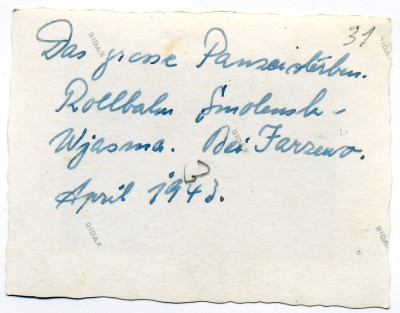 31
Das grosse Panzersterben.
Rollbahn Smolensk-
Wjasma. Bei Jarzewo.
3
April 1943.
RIDAX
RIDAX
RIDAX
RIDAX
RIDAX